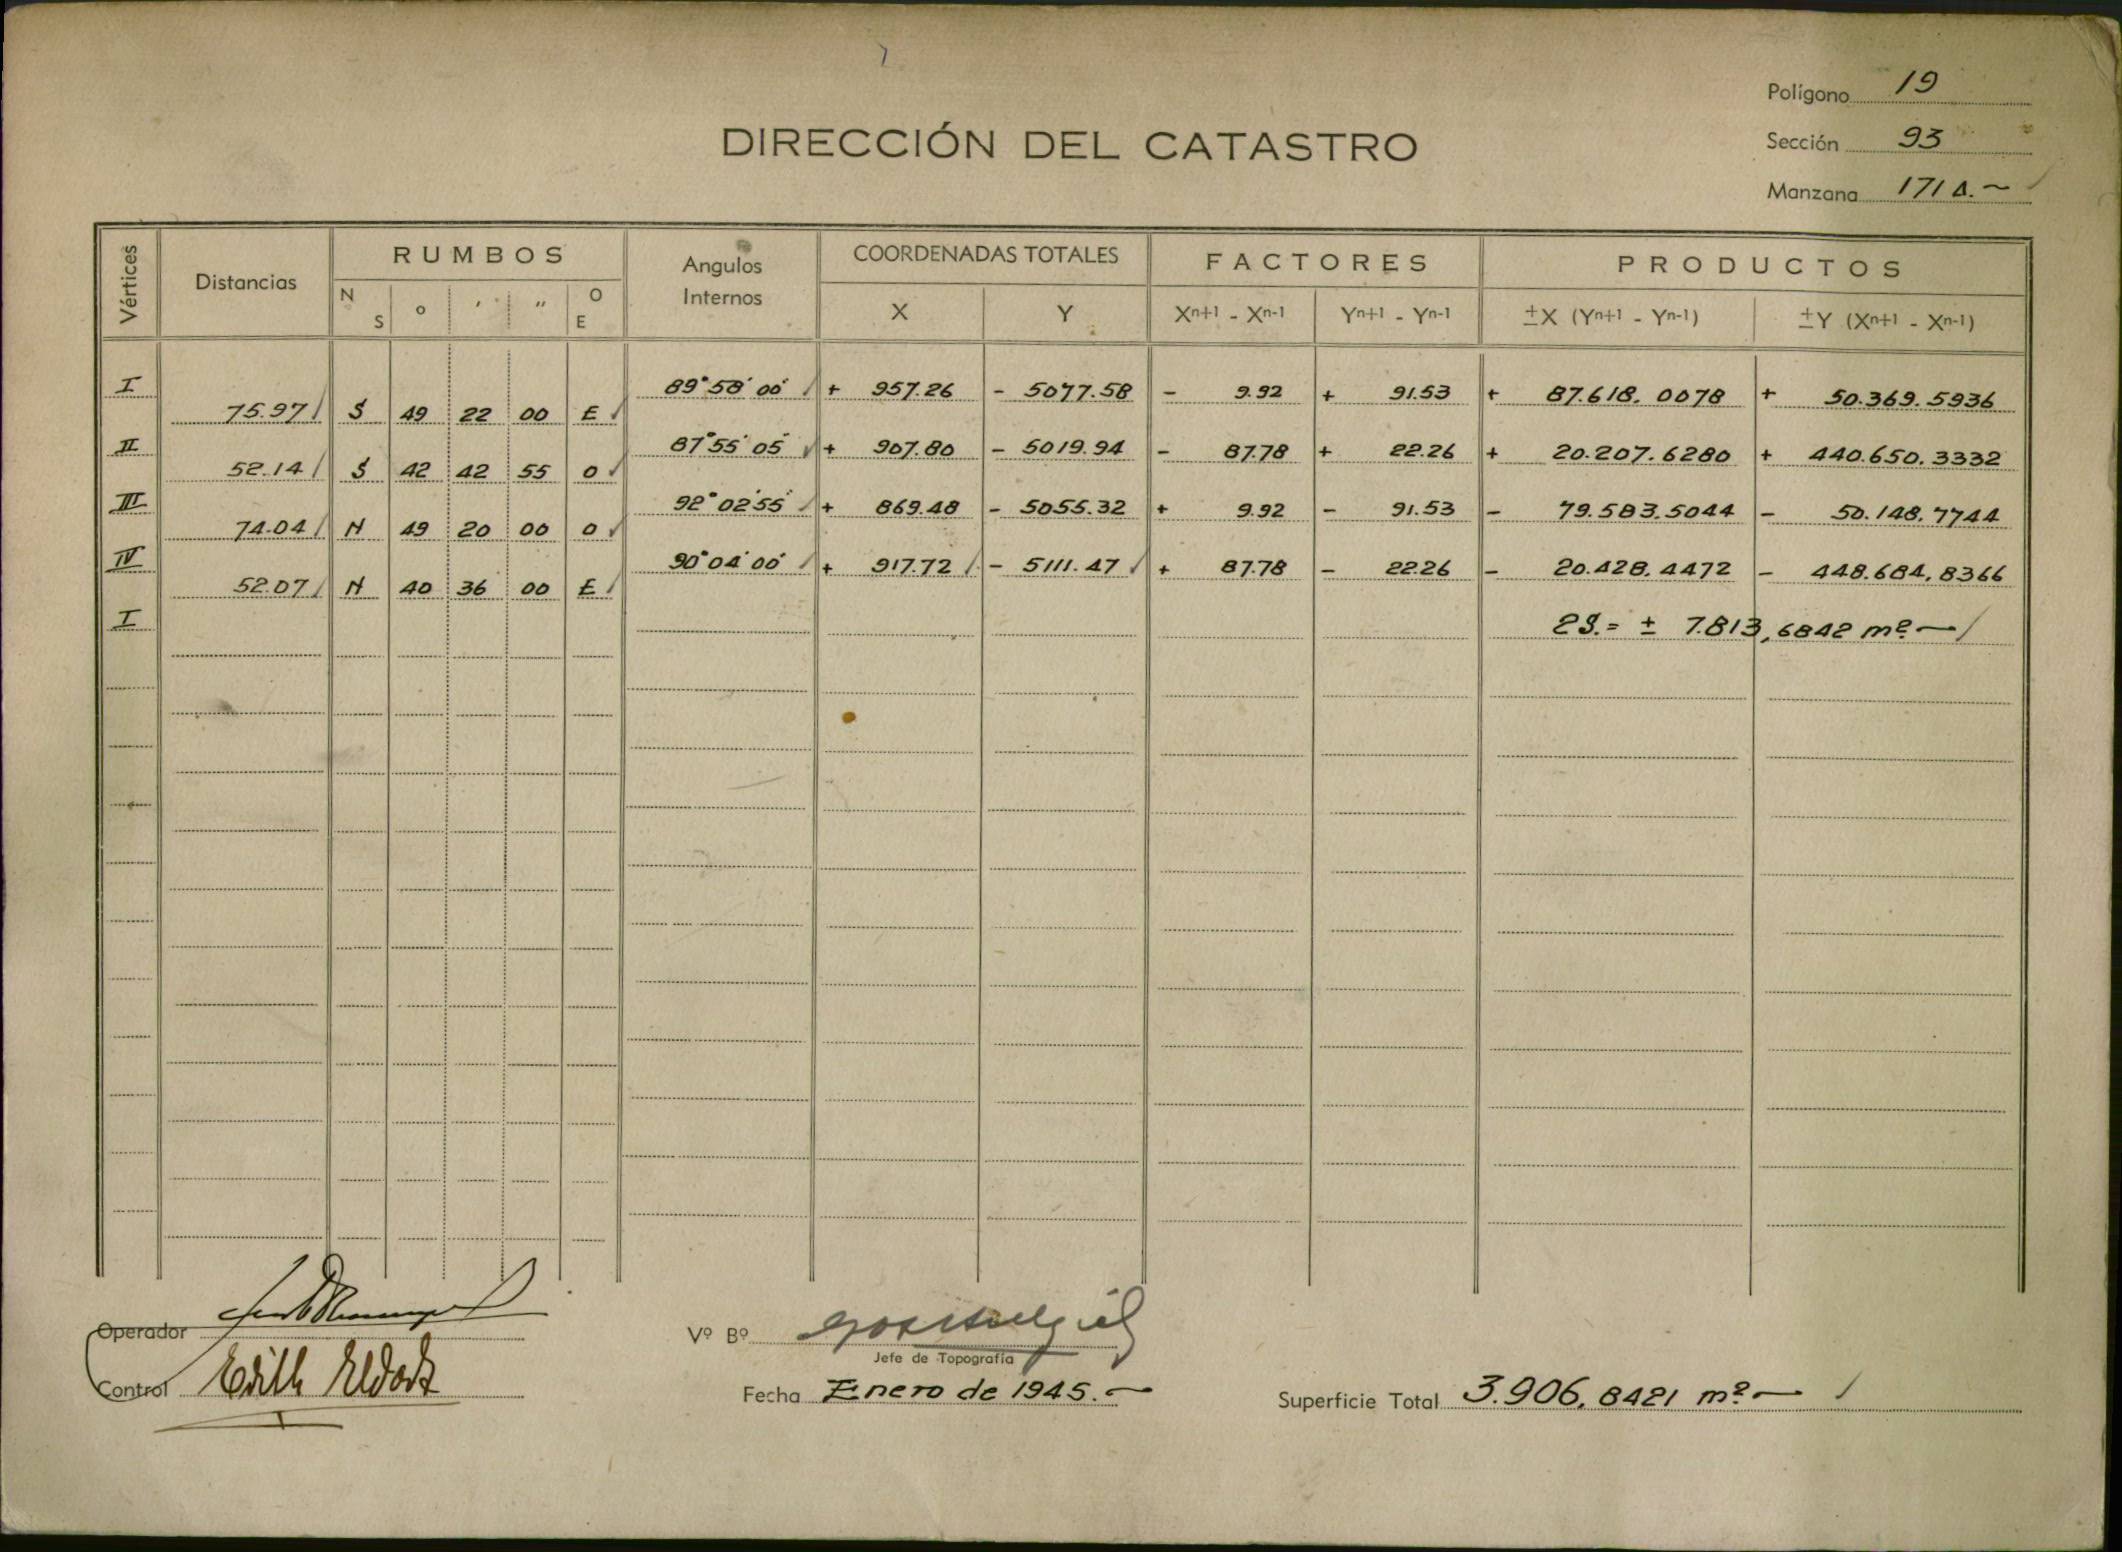 Polígono 19
DIRECCIÓN DEL CATASTRO
Sección 93
Manzana 171 A.
Vértices Distancias RUMBOS Angulos Internos COORDENADAS TOTALES FACTORES PRODUCTOS
N S o ' " O E X Y Xn+1 - Xn-1 Yn+1 - Yn-1 ±X (Yn+1 - Yn-1) ±Y (Xn+1 - Xn-1)
I 89° 58' 00" + 957.26 - 5077.58 - 9.92 + 91.53 + 87.618.0078 + 50.369.5936
75.97 S 49 22 00 E
II 87° 55' 05" + 907.80 - 5019.94 - 87.78 + 22.26 + 20.207.6280 + 440.650.3332
52.14 S 42 42 55 O
III 92° 02' 55" + 869.48 - 5055.32 + 9.92 - 91.53 - 79.583.5044 - 50.148.7744
74.04 N 49 20 00 O
IV 90° 04' 00" + 917.72 - 5111.47 + 87.78 - 22.26 - 20.428.4472 - 448.684.8366
52.07 N 40 36 00 E
I 2S.= ± 7.813,6842 m2
Operador
Vº Bº
Jefe de Topografía
Control
Fecha Enero de 1945.
Superficie Total 3.906.8421 m2